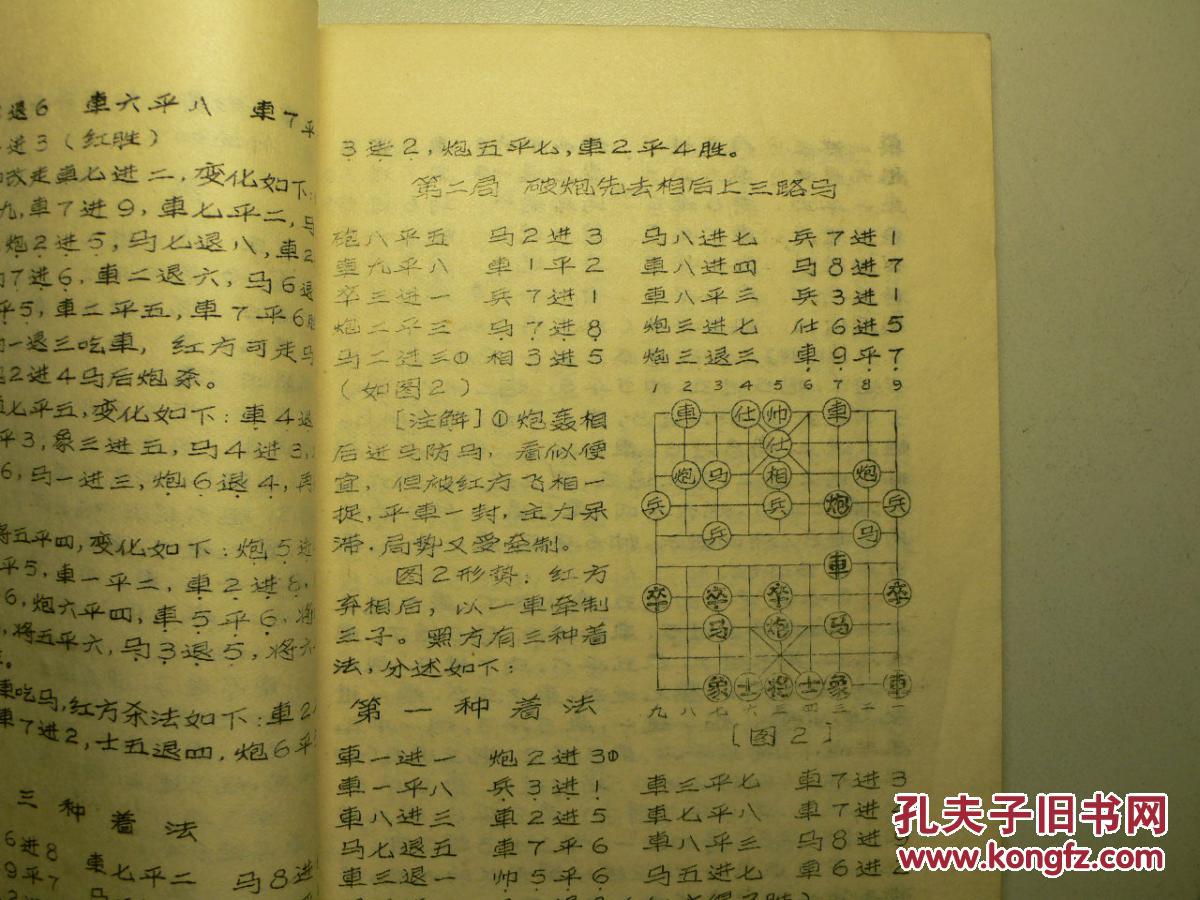 退6 車六平八 車7平
进3（红胜）
改走車七进二，变化如下：
九，車7进9，車七平二，马
炮2进5，马七退八，車2
7进6，車二退六，马6退
平5，車二平五，車7平6
一退三吃車，红方可走马
2进4马后炮杀。
七平五，变化如下：車4退
平3，象三进五，马4进3，
6，马一进三，炮6退4，再
将五平四，变化如下：炮5进
平5，車一平二，車2进8，
6，炮六平四，車5平6，将
，将五平六，马3退5，将六
車吃马，红方杀法如下：車2
車7进2，士五退四，炮6平
三种着法
6进8
9平7 車七平二 马8进
3进2，炮五平七，車2平4胜。
第二局 破炮先去相后上三路马
砲八平五 马2进3 马八进七 兵7进1
車九平八 車1平2 車八进四 马8进7
卒三进一 兵7进1 車八平三 兵3进1
炮二平三 马7进8 炮三进七 仕6进5
马二进三① 相3进5 炮三退三 車9平7
（如图2）
1 2 3 4 5 6 7 8 9
［注解］①炮轰相
后进马防马，看似便
宜，但被红方飞相一
捉，平車一封，主力呆
滞，局势又受牵制。
图2形势：红方
弃相后，以一車牵制
三子。黑方有三种着
法，分述如下：
車 仕 帅 車
仕
炮 马 相 炮
兵 兵 炮 兵
兵 马
車
卒 卒 卒 卒
马 炮 马
象 士 将 士 象 車
九 八 七 六 五 四 三 二 一
［图2］
第一种着法
車一进一 炮2进3①
車一平八 兵3进1 車三平七 車7进3
車八进三 車2进5 車七平八 車7进
马七退五 車7平6 車八平三 马8进
車三退一 帅5平6 马五进七 車6进2
孔夫子旧书网
www.kongfz.com